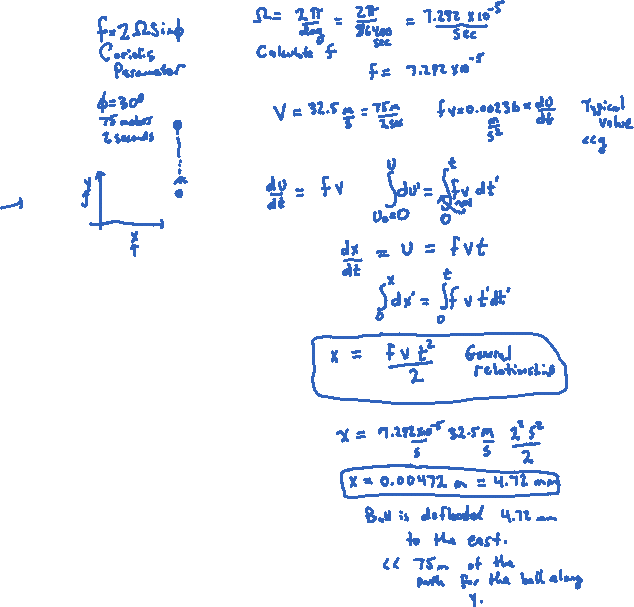 f = 2 Ω sin ϕ
Coriolis
Parameter
Ω = 2π/day = 2π/86400 sec = 7.292 x 10^-5 / sec
Calculate f
f = 7.292 x 10^-5
ϕ = 30°
75 meters
2 seconds
V = 32.5 m/s = 75m/2sec
f v = 0.00236 m/s² = du/dt
Typical
value
<< g
y
x
du/dt = f v
∫_{U₀=0}^{U} du' = ∫_0^t f v dt'
dx/dt = U = f v t
∫_0^x dx' = ∫_0^t f v t' dt'
x = f v t² / 2
General
relationship
x = 7.292x10^-5 / s 32.5 m/s 2² s² / 2
x = 0.00472 m = 4.72 mm
Ball is deflected 4.72 mm
to the east.
<< 75m of the
path for the ball along
y.